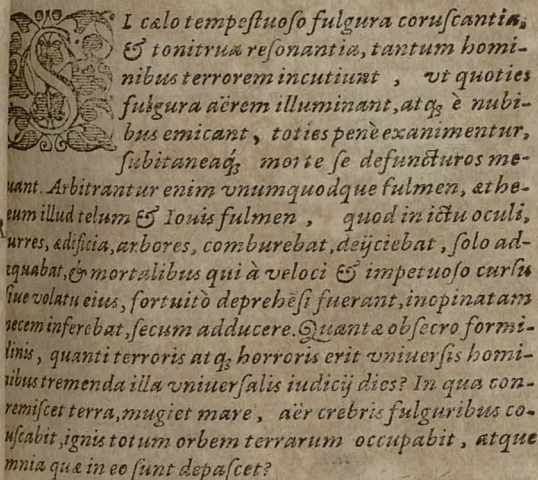 SI cælo tempestuoso fulgura coruscantia,
& tonitrua resonantia, tantum homi-
nibus terrorem incutiunt, vt quoties
fulgura aërem illuminant, atqꝫ è nubi-
bus emicant, toties penè exanimentur,
subitaneaqꝫ́ morte se defuncturos me-
uant. Arbitrantur enim vnumquodque fulmen, æthe-
eum illud telum & Iouis fulmen, quod in ictu oculi,
urres, ædificia, arbores, comburebat, deijciebat, solo ad-
equabat, & mortalibus qui à veloci & impetuoso cursu
siue volatu eius, fortuitò deprehēsi fuerant, inopinatam
necem inferebat, secum adducere. Quantæ obsecro formi-
dinis, quanti terroris atqꝫ horroris erit vniuersis homi-
nibus tremenda illa vniuersalis iudicij dies? In qua con-
remiscet terra, mugiet mare, aër crebris fulguribus co-
uscabit, ignis totum orbem terrarum occupabit, atque
mnia quæ in eo sunt depascet?